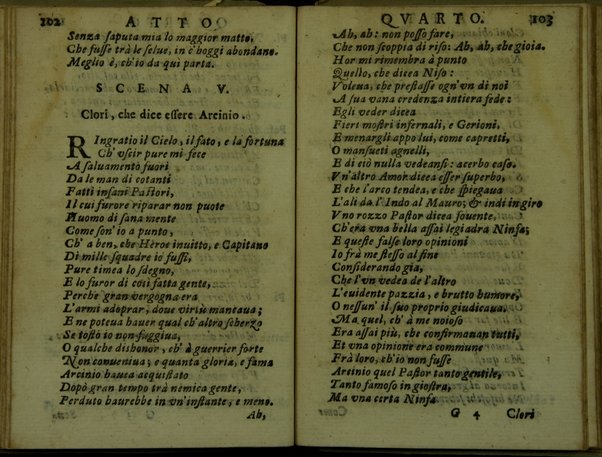 102 ATTO
Senza saputa mia lo maggior matto,
Che fusse trà le selue, in c'hoggi abondano.
Meglio è, ch'io da qui parta.
SCENA V.
Clori, che dice essere Arcinio.
RIngratio il Cielo, il fato, e la fortuna
Ch'vscir pure mi fece
A saluamento fuori
Da le man di cotanti
Fatti insani Pastori,
Il cui furore riparar non puote
Huomo di sana mente
Come son'io a punto,
Ch'a ben, che Hèroe inuitto, e Capitano
Di mille squadre io fussi,
Pure timea lo sdegno,
E lo furor di cosi fatta gente,
Perche gran vergogna era
L'armi adoprar, doue virtù mancaua;
E ne poteua hauer qual ch'altro scherzo
Se tosto io non fuggiua,
O qualche dishonor, ch'à guerrier forte
Non conueniua; e quanta gloria, e fama
Arcinio hauea acquistato
Dopò gran tempo trà nemica gente,
Perduto haurebbe in vn'instante, e meno.
Ah,
QVARTO. 103
Ah, ah: non posso fare,
Che non scoppia di riso: Ah, ah, che gioia.
Hor mi rimembra à punto
Quello, che dicea Niso:
Voleua, che prestasse ogn'vn di noi
A sua vana credenza intiera fede:
Egli veder dicea
Fieri mostri infernali, e Gerioni,
E menargli appo lui, come capretti,
O mansueti agnelli,
E di ciò nulla vedeansi: acerbo caso.
Vn'altro Amor dicea esser superbo,
E che l'arco tendea, e che spiegaua
L'ali da l'Indo al Mauro; & indi in giro
Vno rozzo Pastor dicea souente,
Ch'era vna bella assai legiadra Ninfa;
E queste false loro opinioni
Io frà me stesso al fine
Considerando gia,
Che l'vn vedea de l'altro
L'euidente pazzia, e brutto humore,
O nessun' il suo proprio giudicaua.
Ma quel, ch'à me noioso
Era assai più, che confirmauan tutti,
Et vna opinione era commune
Frà loro, ch'io non fusse
Arcinio quel Pastor tanto gentile,
Tanto famoso in giostra,
Ma vna certa Ninfa
G 4 Clori